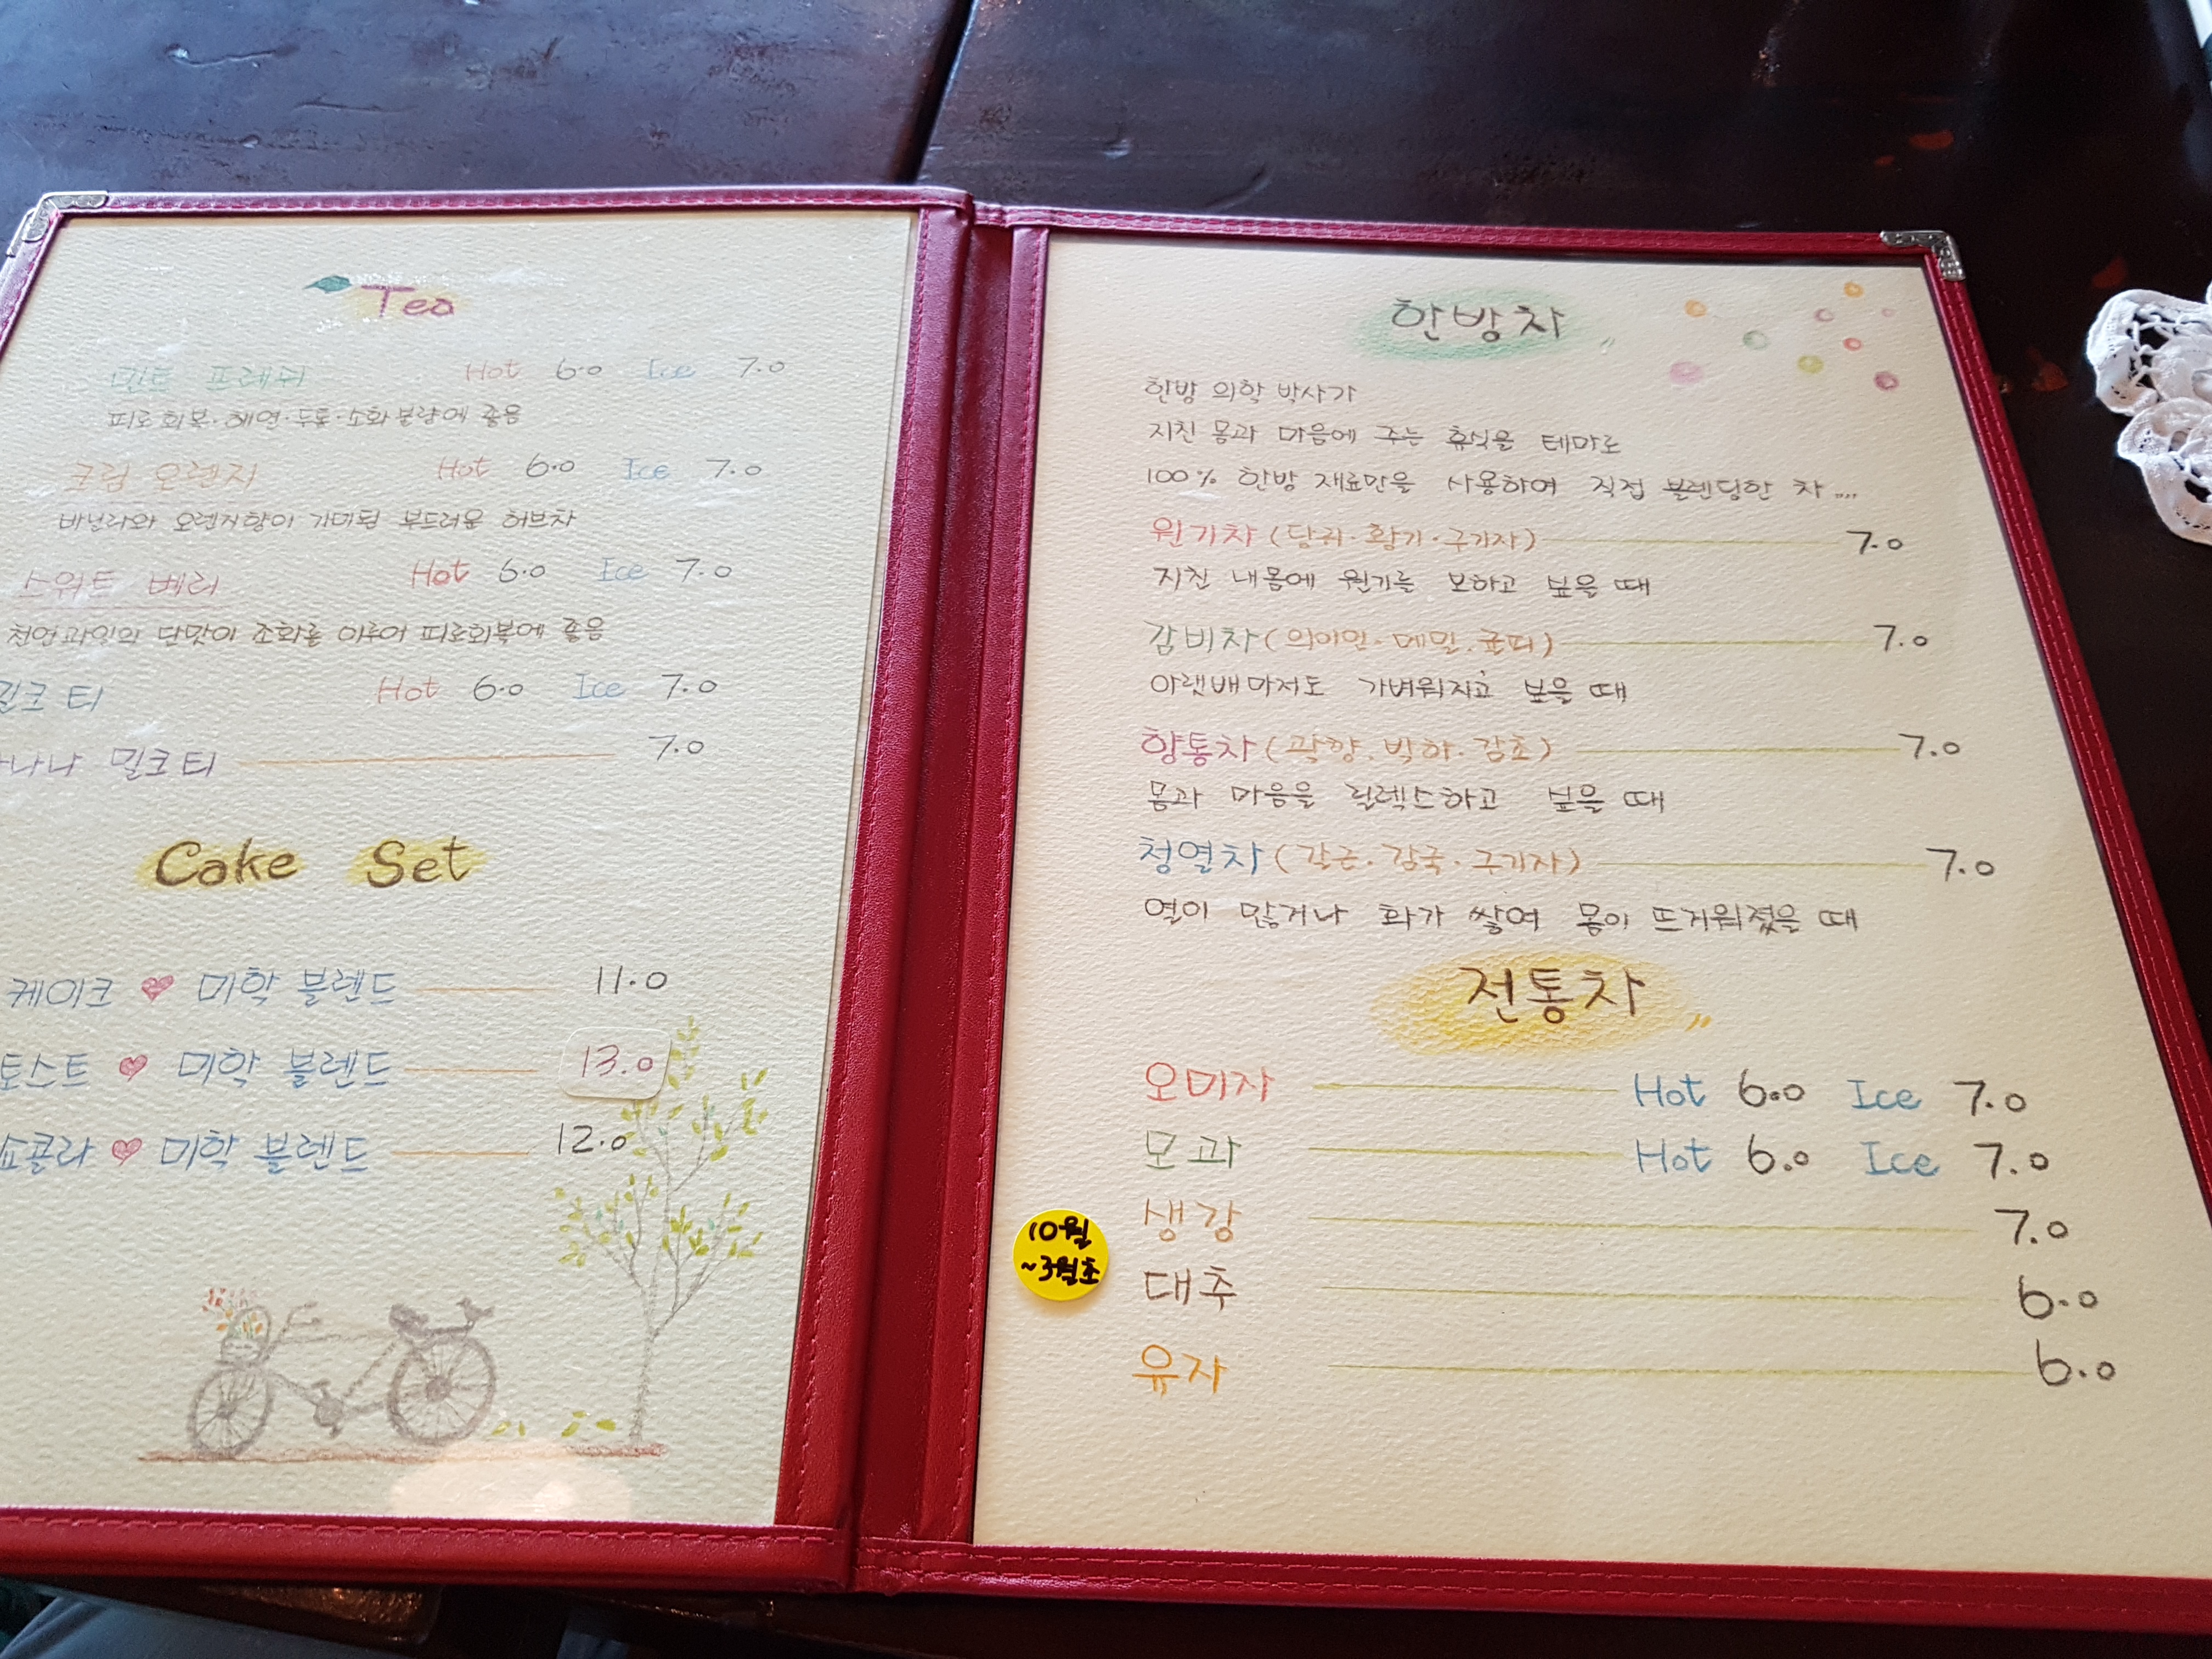 Tea
민트 프레쉬 Hot 6.0 Ice 7.0
피로회복·해열·두통·소화불량에 좋음
크림 오렌지 Hot 6.0 Ice 7.0
바닐라와 오렌지향이 가미된 부드러운 허브차
스위트 베리 Hot 6.0 Ice 7.0
천연과일의 단맛이 조화를 이루어 피로회복에 좋음
밀크티 Hot 6.0 Ice 7.0
밀크티 7.0
Cake Set
케이크 ♥ 미학 블렌드 11.0
토스트 ♥ 미학 블렌드 13.0
쇼콜라 ♥ 미학 블렌드 12.0
한방차
한방 의학 박사가
지친 몸과 마음에 주는 휴식을 테마로
100% 한방 재료만을 사용하여 직접 블렌딩한 차...
원기차 (당귀·황기·구기자) 7.0
지친 내몸에 원기를 보하고 싶을 때
감비차 (의이인·메밀·귤피) 7.0
아랫배마저도 가벼워지고 싶을 때
향통차 (곽향·박하·감초) 7.0
몸과 마음을 릴렉스하고 싶을 때
청열차 (갈근·감국·구기자) 7.0
열이 많거나 화가 쌓여 몸이 뜨거워졌을 때
전통차
오미자 Hot 6.0 Ice 7.0
모과 Hot 6.0 Ice 7.0
생강 7.0
10월
~3월초
대추 6.0
유자 6.0